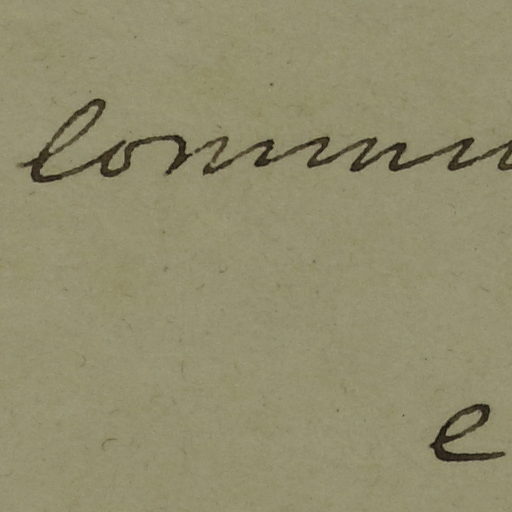 Commu
e